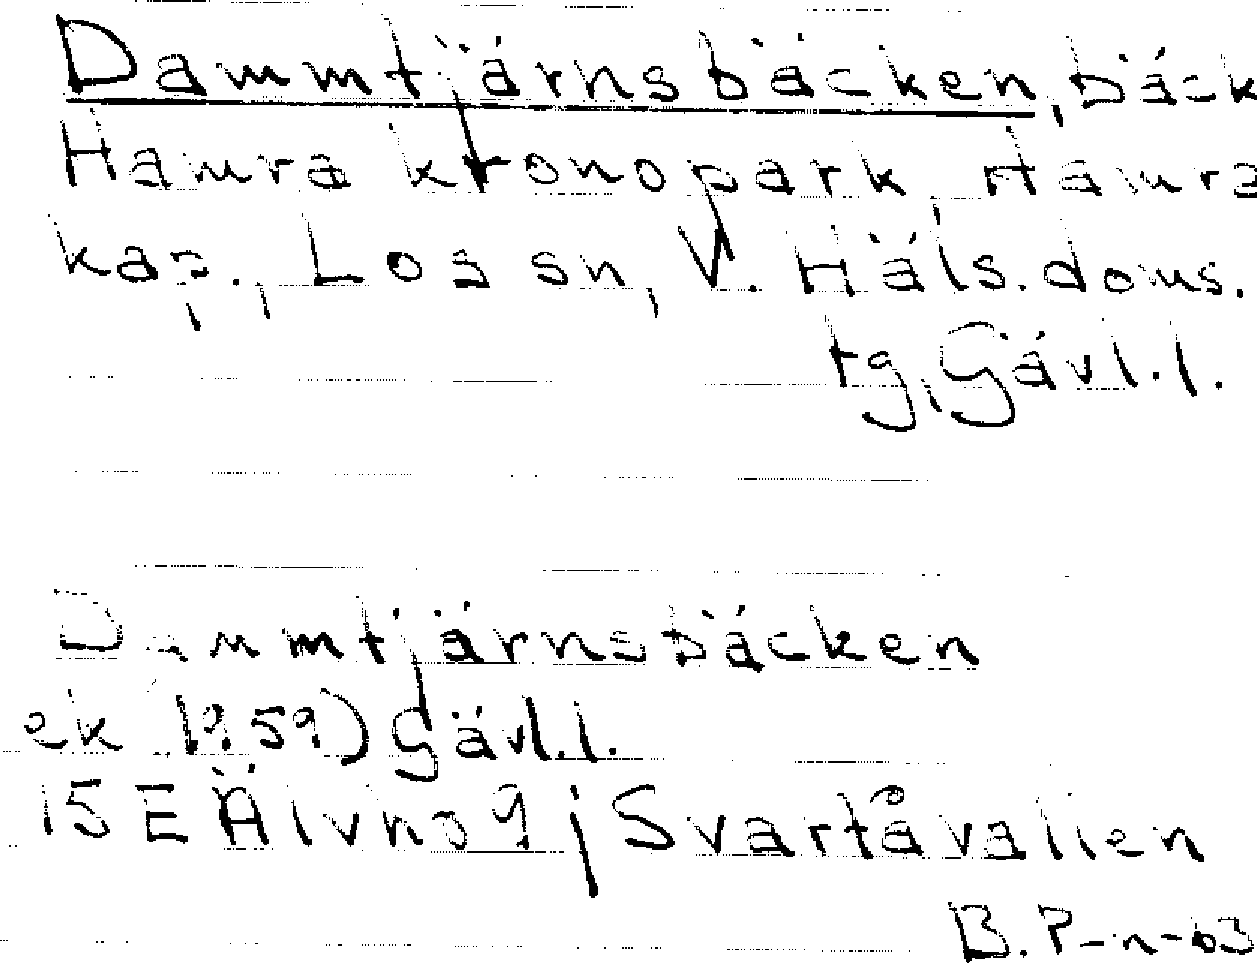 Dammtjärnsbäcken, bäck
Hamra kronopark, Hamra
kap., Los sn, V. Häls. doms.
tg, Gävl.l.
Dammtjärnsbäcken
ek 1959) Gävl.l.
15 E Älvho 9 j Svartåvallen
B. P-n-63